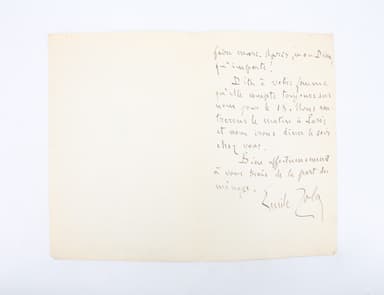 faire mars. Après, mon Dieu
qu'importe !
Dites à votre femme
qu'elle compte toujours sur
nous pour le 13. Nous
le matin à Paris
et nous irons dîner le soir
chez vous.
Bien affectueusement
à vous trois de la part du
ménage.
Emile Zola